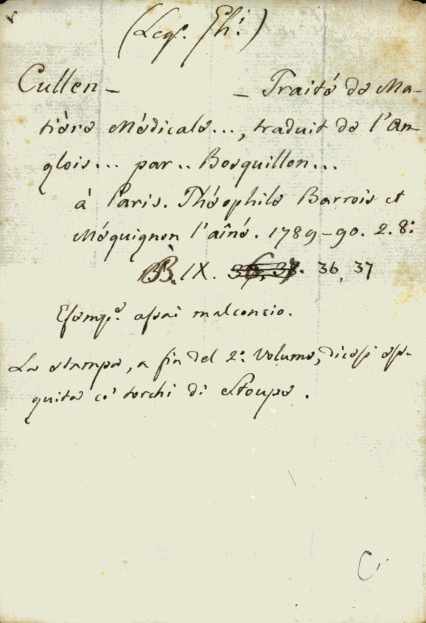 (Leg. Fh.)
Cullen – – Traité de Ma-
tière Médicale..., traduit de l'An-
glois... par .. Bosquillon...
à Paris. Théophile Barrois et
Méquignon l'aîné. 1789-90. 2. 8:
B. IX. 36, 37
Esemp. assai malconcio.
La stampa, a fin del 2. volume, dicesi ese-
guita co' torchi di Stoupe.
C